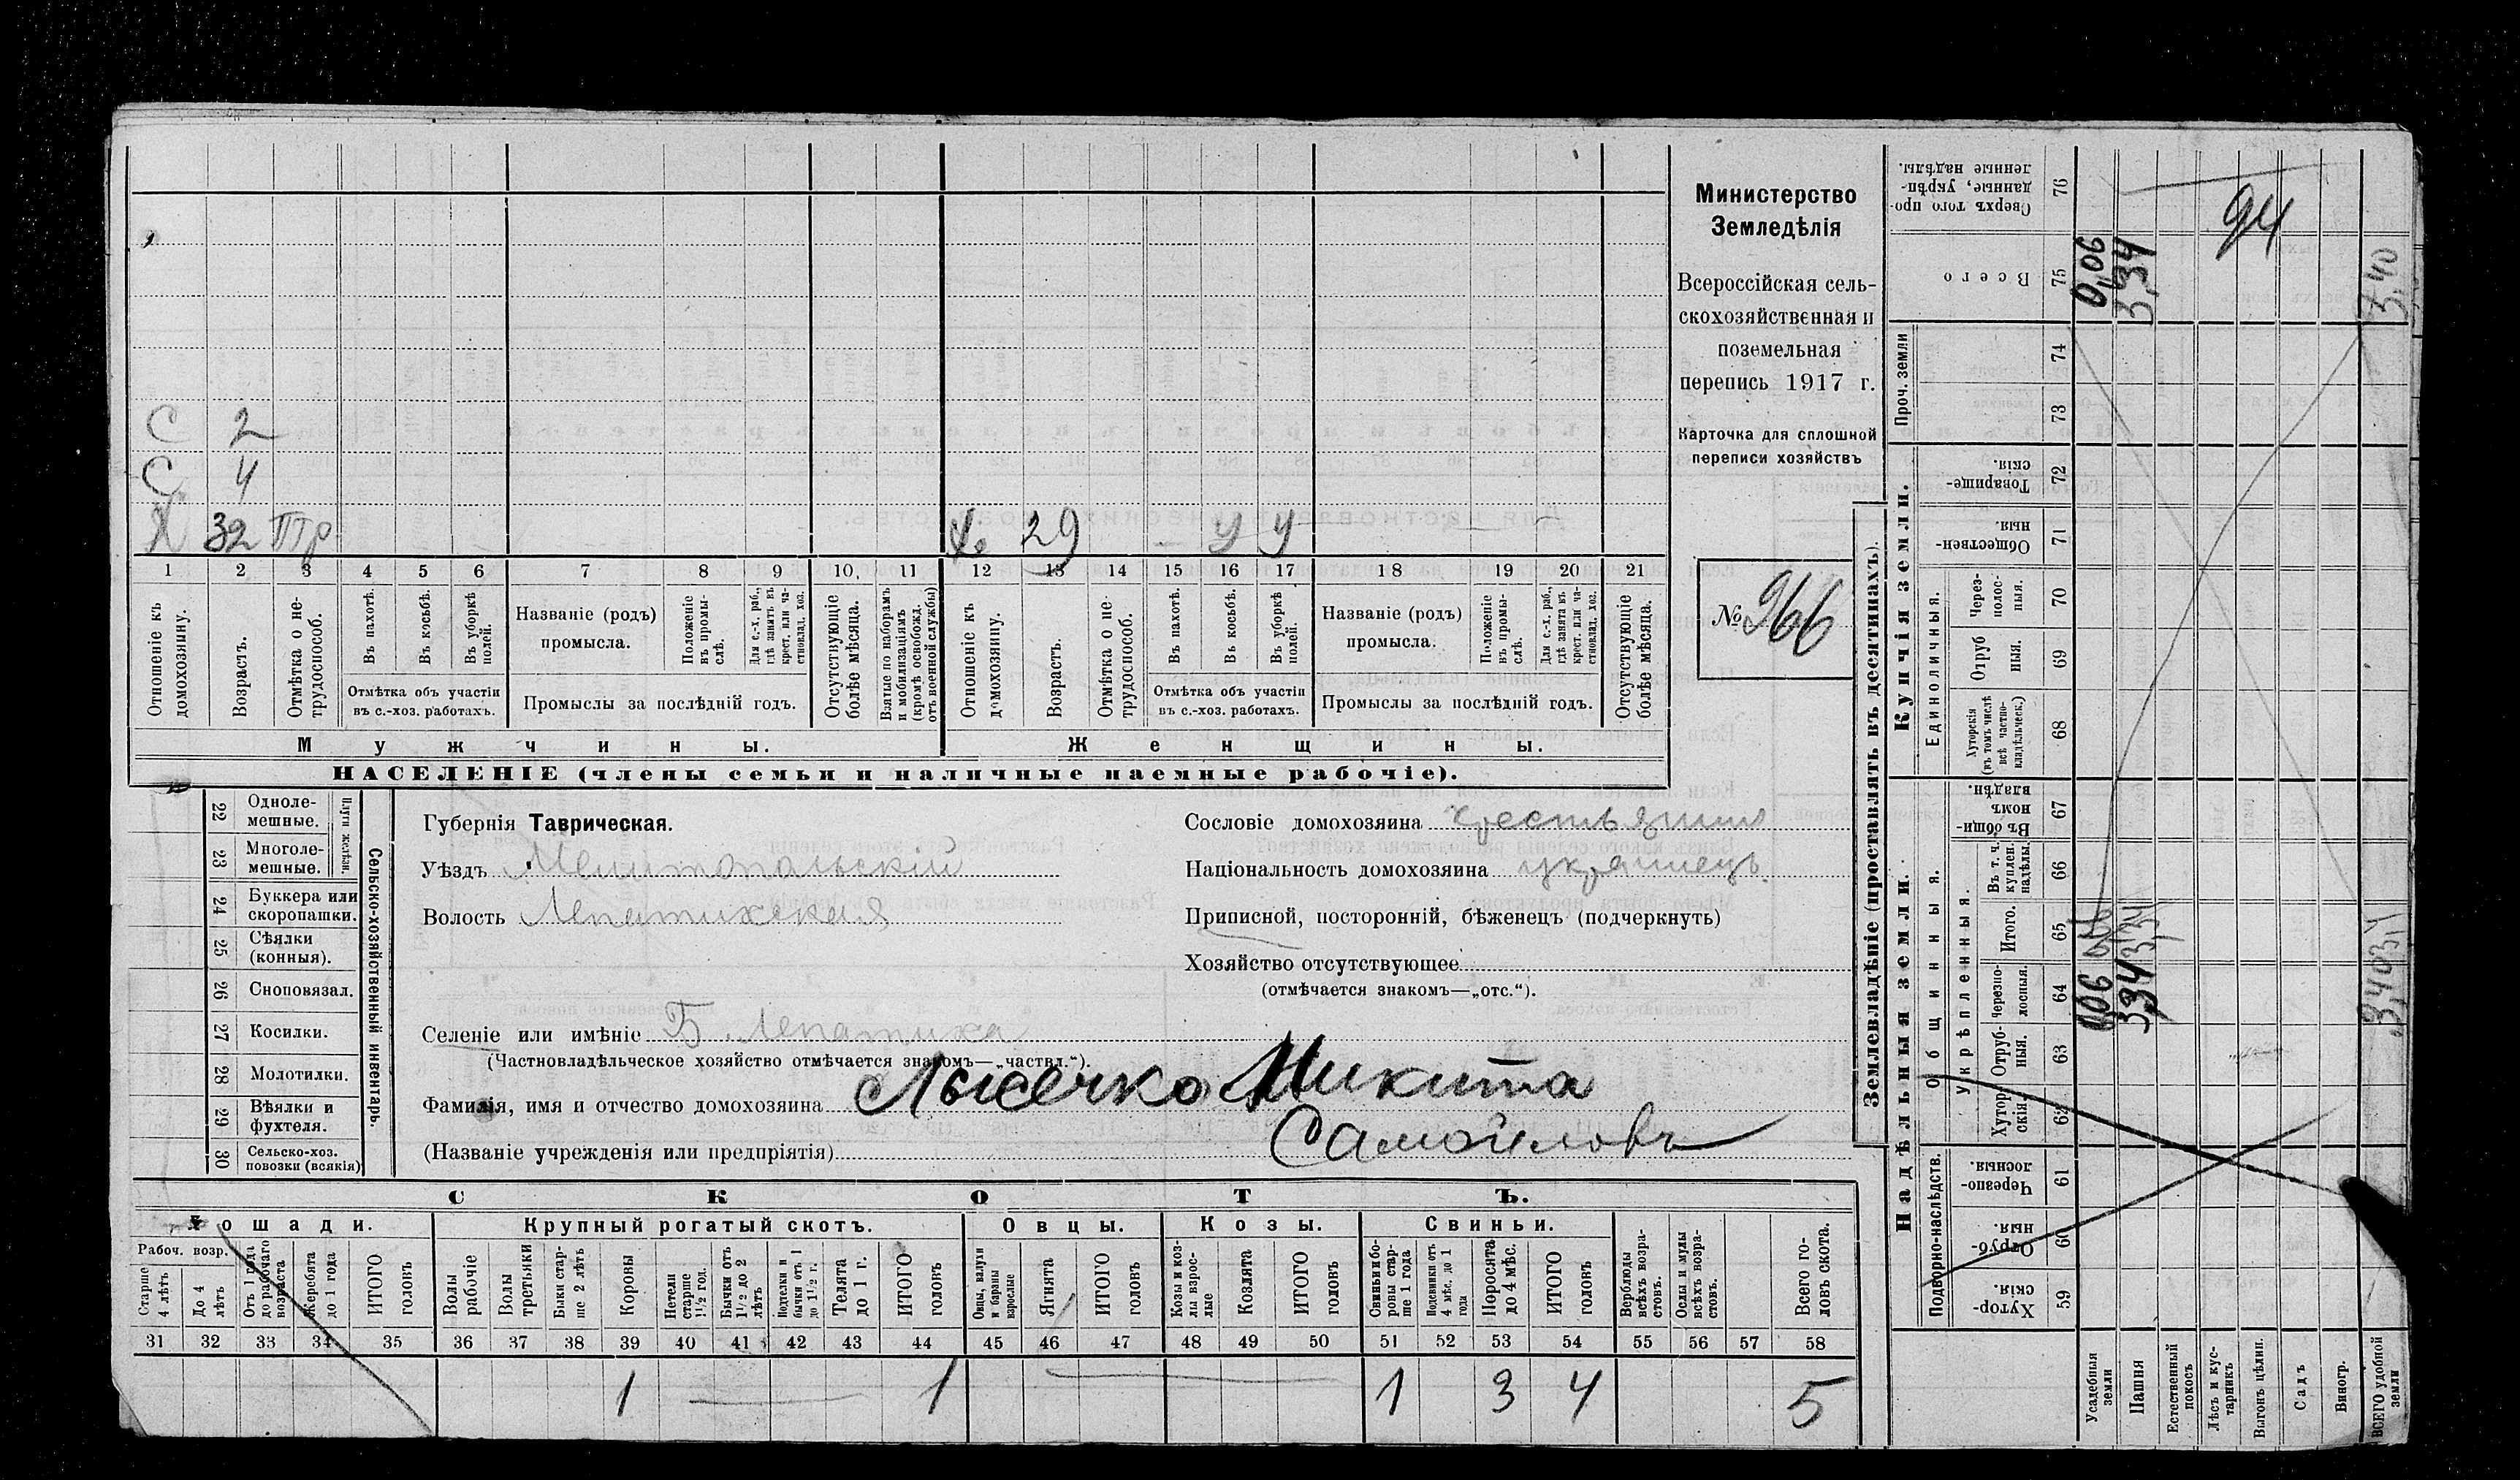 С 2
С 4
Х 32 Птр
Ж 29 У У
1 2 3 4 5 6 7 8 9 10 11 12 13 14 15 16 17 18 19 20 21
Отношеніе къ домохозяину.
Возрастъ.
Отмѣтка о нетрудоспособ.
Въ пахотѣ.
Въ косьбѣ.
Въ уборкѣ полей.
Отмѣтка объ участіи въ с.-хоз. работахъ.
Названіе (родъ) промысла.
Положеніе въ промыслѣ.
Для с.-х. раб., гдѣ занятъ въ крест. или частновлад. хоз.
Промыслы за послѣдній годъ.
Отсутствующіе болѣе мѣсяца.
Взятые по наборамъ и мобилизаціямъ (кромѣ освобожд. отъ военной службы)
Отношеніе къ домохозяину.
Возрастъ.
Отмѣтка о нетрудоспособ.
Въ пахотѣ.
Въ косьбѣ.
Въ уборкѣ полей.
Отмѣтка объ участіи въ с.-хоз. работахъ.
Названіе (родъ) промысла.
Положеніе въ промыслѣ.
Для с.-х. раб., гдѣ занята въ крест. или частновлад. хоз.
Промыслы за послѣдній годъ.
Отсутствующіе болѣе мѣсяца.
Мужчины.
Женщины.
НАСЕЛЕНІЕ (члены семьи и наличные наемные рабочіе).
Министерство
Земледѣлія
Всероссійская сель-
скохозяйственная и
поземельная
перепись 1917 г.
Карточка для сплошной
переписи хозяйствъ
№ 966
22 Одноле-
мешные.
23 Многоле-
мешные.
Плуги желѣзн.
24 Буккера или
скоропашки.
25 Сѣялки
(конныя).
26 Сноповязал.
27 Косилки.
28 Молотилки.
29 Вѣялки и
фухтеля.
30 Сельско-хоз.
повозки (всякія)
Сельско-хозяйственный инвентарь.
Губернія Таврическая.
Уѣздъ Мелитопольскій
Волость Лепатихская
Сословіе домохозяина крестьянинъ
Національность домохозяина украинецъ
Приписной, посторонній, бѣженецъ (подчеркнуть)
Хозяйство отсутствующее
(отмѣчается знакомъ—„отс.“).
Селеніе или имѣніе Б. Лепатиха
(Частновладѣльческое хозяйство отмѣчается знакомъ—„частвл.“).
Фамилія, имя и отчество домохозяина Лысечко Никита
(Названіе учрежденія или предпріятія) Самойловъ
СКОТЪ.
Лошади.
Крупный рогатый скотъ.
Овцы.
Козы.
Свиньи.
Рабоч. возр.
Старше 4 лѣтъ
До 4 лѣтъ
Отъ 1 года до рабочаго возраста
Жеребята до 1 года
ИТОГО головъ
Волы рабочіе
Волы третьяки
Быки старше 2 лѣтъ
Коровы
Нетели старше 1½ год.
Бычки отъ 1½ до 2 лѣтъ
Подтелки и бычки отъ 1 до 1½ г.
Телята до 1 г.
ИТОГО головъ
Овцы, валухи и бараны взрослые
Ягнята
ИТОГО головъ
Козы и козлы взрослые
Козлята
ИТОГО головъ
Свиньи и боровы старше 1 года
Подсвинки отъ 4 мѣс. до 1 года
Поросята до 4 мѣс.
ИТОГО головъ
Верблюды всѣхъ возрастовъ.
Ослы и мулы всѣхъ возрастовъ.
Всего головъ скота.
31 32 33 34 35 36 37 38 39 40 41 42 43 44 45 46 47 48 49 50 51 52 53 54 55 56 57 58
1 1 1 3 4 5
Землевладѣніе (проставлять въ десятинахъ).
Сверхъ того проданные, укрѣпленные надѣлы. 76
94
Всего 75 0,06 3,34 3,40
Проч. земли
74
73
Купчія земли.
Товарищескія. 72
Общественныя. 71
Единоличныя.
Черезполосныя. 70
Отрубныя. 69
Хуторскія (въ томъ числѣ всѣ частновладѣльческ.) 68
Надѣльныя земли.
Общинныя.
Въ общинномъ владѣн. 67
Укрѣпленныя.
Въ т. ч. куплен. надѣлы. 66
Итого. 65 3,34
Черезполосныя. 64 0,06 3,34 3,40
Отрубныя. 63
Хуторскія. 62
Подворно-наслѣдств.
Черезполосныя. 61
Отрубныя. 60
Хуторскія. 59
Усадебныя земли
Пашня
Естественный покосъ
Лѣсъ и кустарникъ
Выгонъ цѣлин.
Садъ
Виногр.
ВСЕГО удобной земли